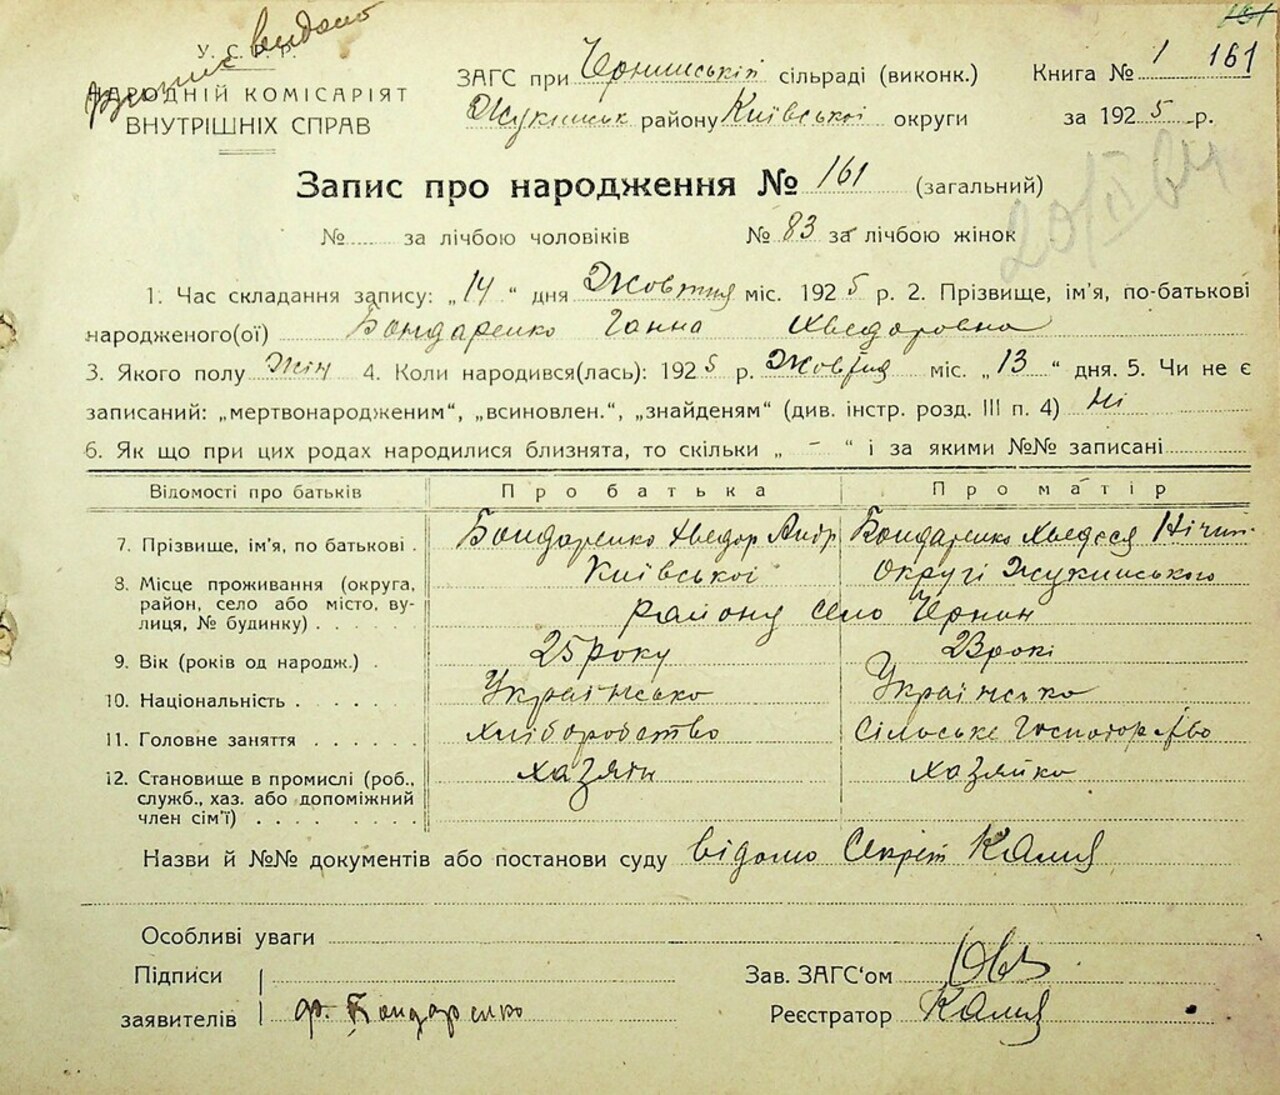 161
видано
У. С. Р. Р.
НАРОДНІЙ КОМІСАРІЯТ
ВНУТРІШНІХ СПРАВ
ЗАГС при Чернинській сільраді (виконк.)
Жукинськ району Київської округи
Книга № 1 161
за 1925 р.
Запис про народження № 161 (загальний)
№ ...... за лічбою чоловіків № 83 за лічбою жінок
20/II 64
1. Час складання запису: „14“ дня Жовтня міс. 1925 р. 2. Прізвище, ім'я, по-батькові
народженого(ої) Бондаренко Ганна Хведоровна
3. Якого полу Жін 4. Коли народився(лась): 1925 р. Жовтня міс. „13“ дня. 5. Чи не є
записаний: „мертвонародженим“, „всиновлен.“, „знайденям“ (див. інстр. розд. III п. 4) Ні
6. Як що при цих родах народилися близнята, то скільки „ - “ і за якими №№ записані
Відомості про батьків Про батька Про матір
7. Прізвище, ім'я, по батькові . Бондаренко Хведор Андр Бондаренко Хведося Нічип
8. Місце проживання (округа, Київської Округі Жукинського
район, село або місто, ву- району село Чернин
лиця, № будинку) . . . . .
9. Вік (років од народж.) . 25 року 23 рокі
10. Національність . . . . . . Українсько Українсько
11. Головне заняття . . . . . . Хліборобство Сільське Господорство
12. Становище в промислі (роб., хазяїн хазяйко
служб., хаз. або допоміжний
член сім'ї) . . . . . . . .
Назви й №№ документів або постанови суду відомо Секрет Калия
Особливі уваги
Підписи
заявителів ф. Бондаренко
Зав. ЗАГС'ом
Реєстратор Калия